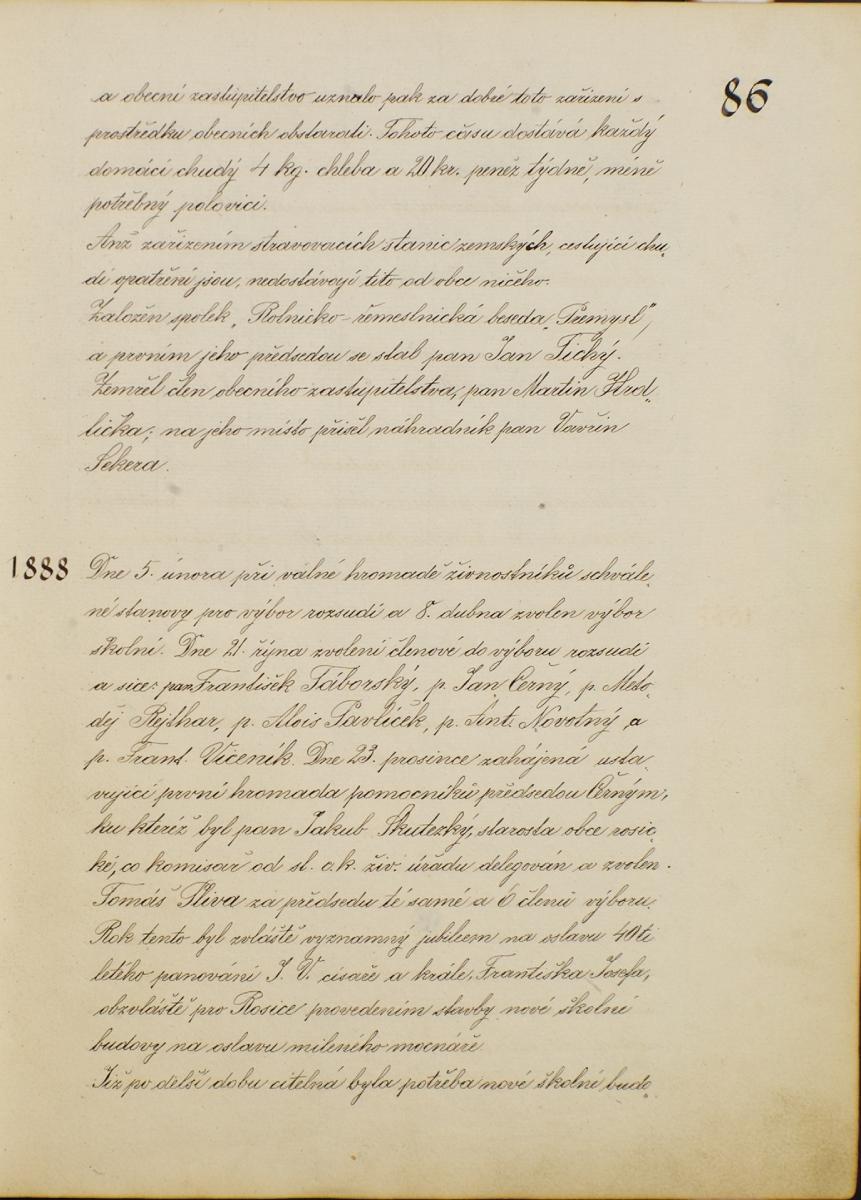 86
a obecní zastupitelstvo uznalo pak za dobré toto zařízení s
prostředku obecních obstarati. Tohoto času dostává každý
domácí chudý 4 kg. chleba a 20 kr. peněz týdně, méně
potřebný polovici.
Anž zařízením stravovacích stanic zemských, cestující chu„
dí opatření jsou, nedostávají tito od obce ničeho.
Založen spolek „Rolnicko-řemeslnická beseda „Přemysl",
a prvním jeho předsedou se stal pan Jan Tichý.
Zemřel člen obecního zastupitelstva, pan Martin Hrd„
lička; na jeho místo přišel náhradník pan Vavřin
Sekera.
1888 Dne 5. února při valné hromadě živnostníků schvále„
né stanovy pro výbor rozsudí a 8. dubna zvolen výbor
školní. Dne 21. října zvoleni členové do výboru rozsudí
a sice: pan František Táborský, p. Jan Černý, p. Meto„
děj Rejthar, p. Alois Pavlíček, p. Ant. Novotný a
p. Frant. Viceník. Dne 23. prosince zahájená usta„
vující první hromada pomocníků předsedou Černým,
ku kteréž byl pan Jakub Skutezký, starosta obce rosic„
ké, co komisař od sl. c.k. živ. úřadu delegován a zvolen
Tomáš Pliva za předsedu té samé a 6 členů výboru.
Rok tento byl zvláště významný jubileem na oslavu 40ti
letého panování J. V. císaře a krále, Františka Josefa,
obzvláště pro Rosice provedením stavby nové školní
budovy na oslavu mileného mocnáře.
Již po delší dobu citelná byla potřeba nové školní budo„